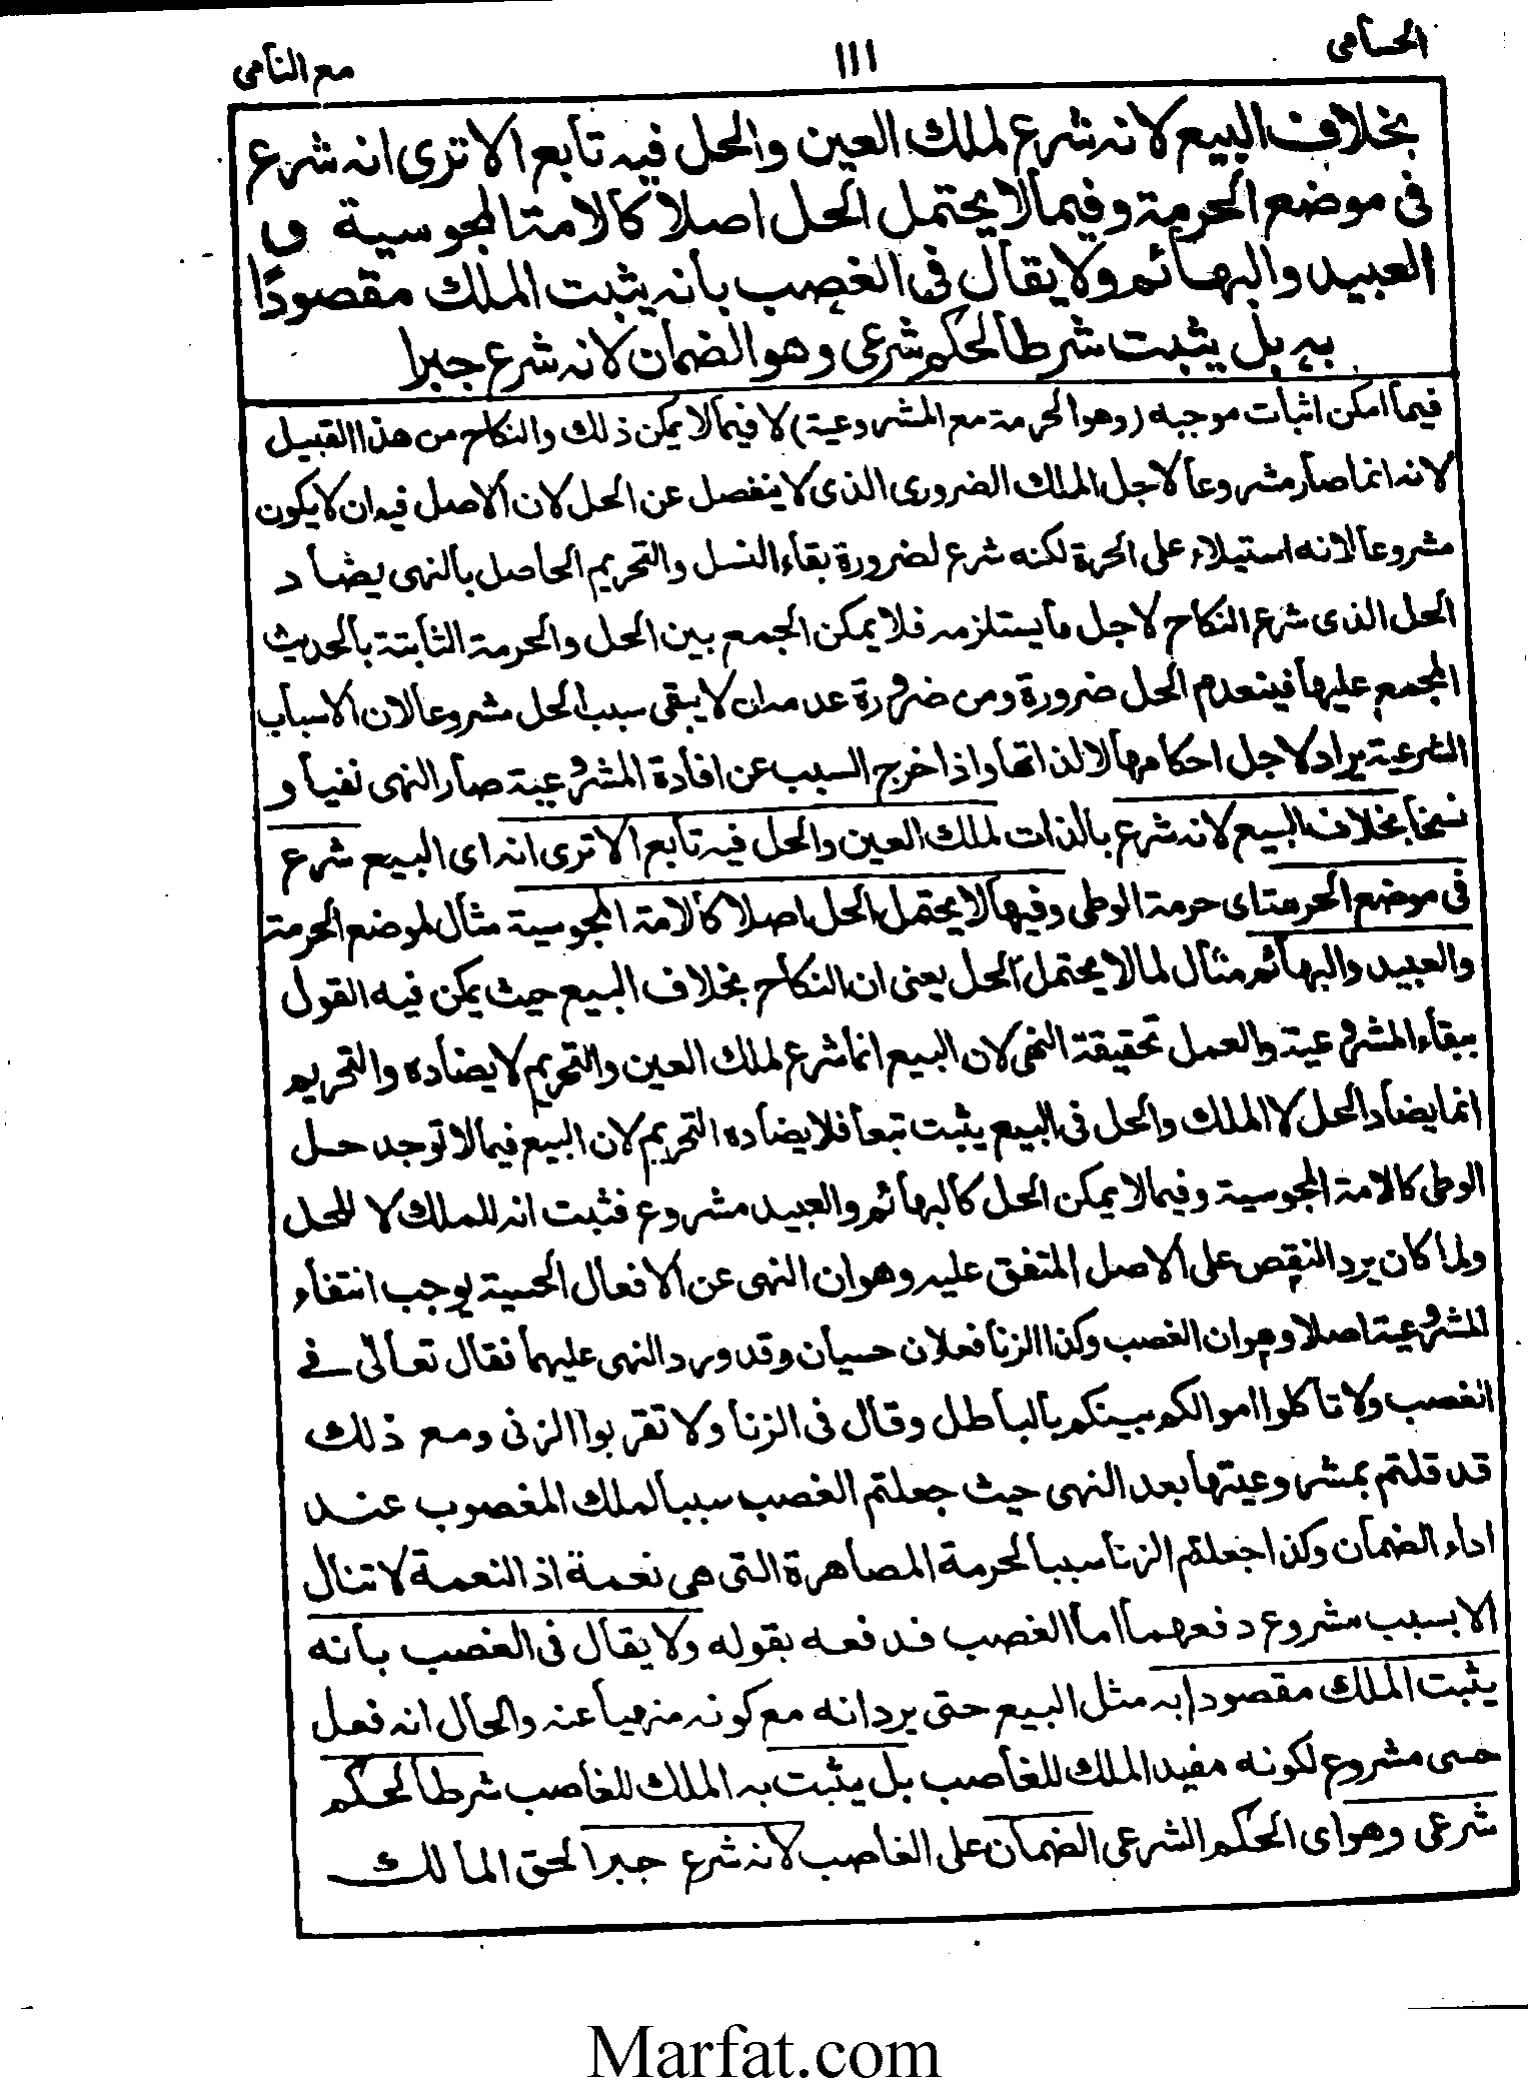 الحسامی
١١١
مع النامی
بخلاف البيع لانه شرع لملك العين والحل فيه تابع الا ترى انه شرع
فی موضع الحرمة وفيما لا يحتمل الحل اصلا كالامة المجوسية و
العبيد والبهائم ولا يقال فی الغصب بانه يثبت الملك مقصودًا
به بل يثبت شرطا لحكم شرعی وهو الضمان لانه شرع جبرا
فيما امكن اثبات موجبه (وهو الحرمة مع المشروعية) لا فيما لا يمكن ذلك والنكاح من هذا القبيل
لانه انما صار مشروعا لاجل الملك الضروری الذی لا ينفصل عن الحل لان الاصل فيه ان لا يكون
مشروعا لانه استيلاء على الحرة لكنه شرع لضرورة بقاء النسل والتحريم الحاصل بالنهی يضاد
الحل الذی شرع النكاح لاجل ما يستلزمه فلا يمكن الجمع بين الحل والحرمة الثابتة بالحديث
المجمع عليها فينعدم الحل ضرورة ومن ضرورة عدمه ان لا يبقى سبب الحل مشروعا لان الاسباب
الشرعية يراد لاجل احكامها لا لذاتها واذا خرج السبب عن افادة المشروعية صار النهی نفيا و
نسخا بخلاف البيع لانه شرع بالذات لملك العين والحل فيه تابع الا ترى انه ای البيع شرع
فی موضع الحرمة ای حرمة الوطی وفيما لا يحتمل الحل اصلا كالامة المجوسية مثال لموضع الحرمة
والعبيد والبهائم مثال لما لا يحتمل الحل يعنی ان النكاح بخلاف البيع حيث يمكن فيه القول
ببقاء المشروعية والعمل بحقيقة النهی لان البيع انما شرع لملك العين والتحريم لا يضاده والتحريم
انما يضاد الحل لا الملك والحل فی البيع يثبت تبعا فلا يضاده التحريم لان البيع فيما لا توجد حل
الوطی كالامة المجوسية وفيما لا يمكن الحل كالبهائم والعبيد مشروع فثبت انه للملك لا للحل
ولما كان يرد النقض على الاصل المتفق عليه وهو ان النهی عن الافعال الحسية يوجب انتفاء
المشروعية اصلا وهو ان الغصب وكذا الزنا فعلان حسيان وقد ورد النهی عليهما فقال تعالى فے
الغصب ولا تاكلوا اموالكم بينكم بالباطل وقال فی الزنا ولا تقربوا الزنی ومع ذلك
قد قلتم بمشروعيتها بعد النهی حيث جعلتم الغصب سببا لملك المغصوب عند
اداء الضمان وكذا جعلتم الزنا سببا لحرمة المصاهرة التی هی نعمة اذ النعمة لا تنال
الا بسبب مشروع دفعهما اما الغصب فدفعه بقوله ولا يقال فی الغصب بانه
يثبت الملك مقصودا به مثل البيع حتى يرد انه مع كونه منهيا عنه والحال انه فعل
حسی مشروع لكونه مفيد الملك للغاصب بل يثبت به الملك للغاصب شرطا لحكم
شرعی وهو ای الحكم الشرعی الضمان على الغاصب لانه شرع جبرا لحق المالك
Marfat.com